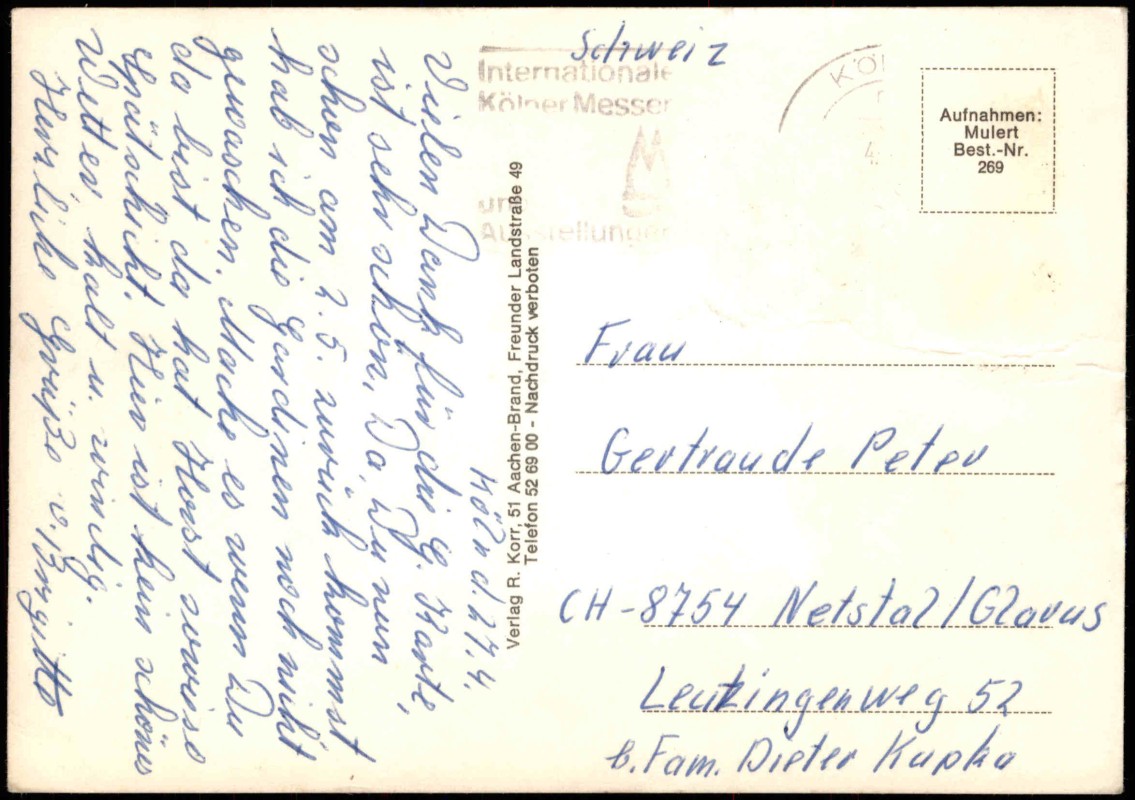 Köln d. 27.4.
Vielen Dank für die g. Karte,
ist sehr schön, Da, Du nun
schon am 2.5. zurück kommst
hab ich die Gardinen noch nicht
gewaschen, Mache es wenn Du
da bist da hat Horst sowieso
Spätschicht. Hier ist kein schönes
Wetter, kalt u. windig.
Herzliche Grüße v. Brigitte
Verlag R. Korr, 51 Aachen-Brand, Freunder Landstraße 49
Telefon 52 69 00 - Nachdruck verboten
Schweiz
Internationale
Kölner Messen
und
Ausstellungen
KÖL
Aufnahmen:
Mulert
Best.-Nr.
269
Frau
Gertraude Peter
CH-8754 Netstal/Glarus
Leutzingenweg 52
b. Fam. Dieter Kupka